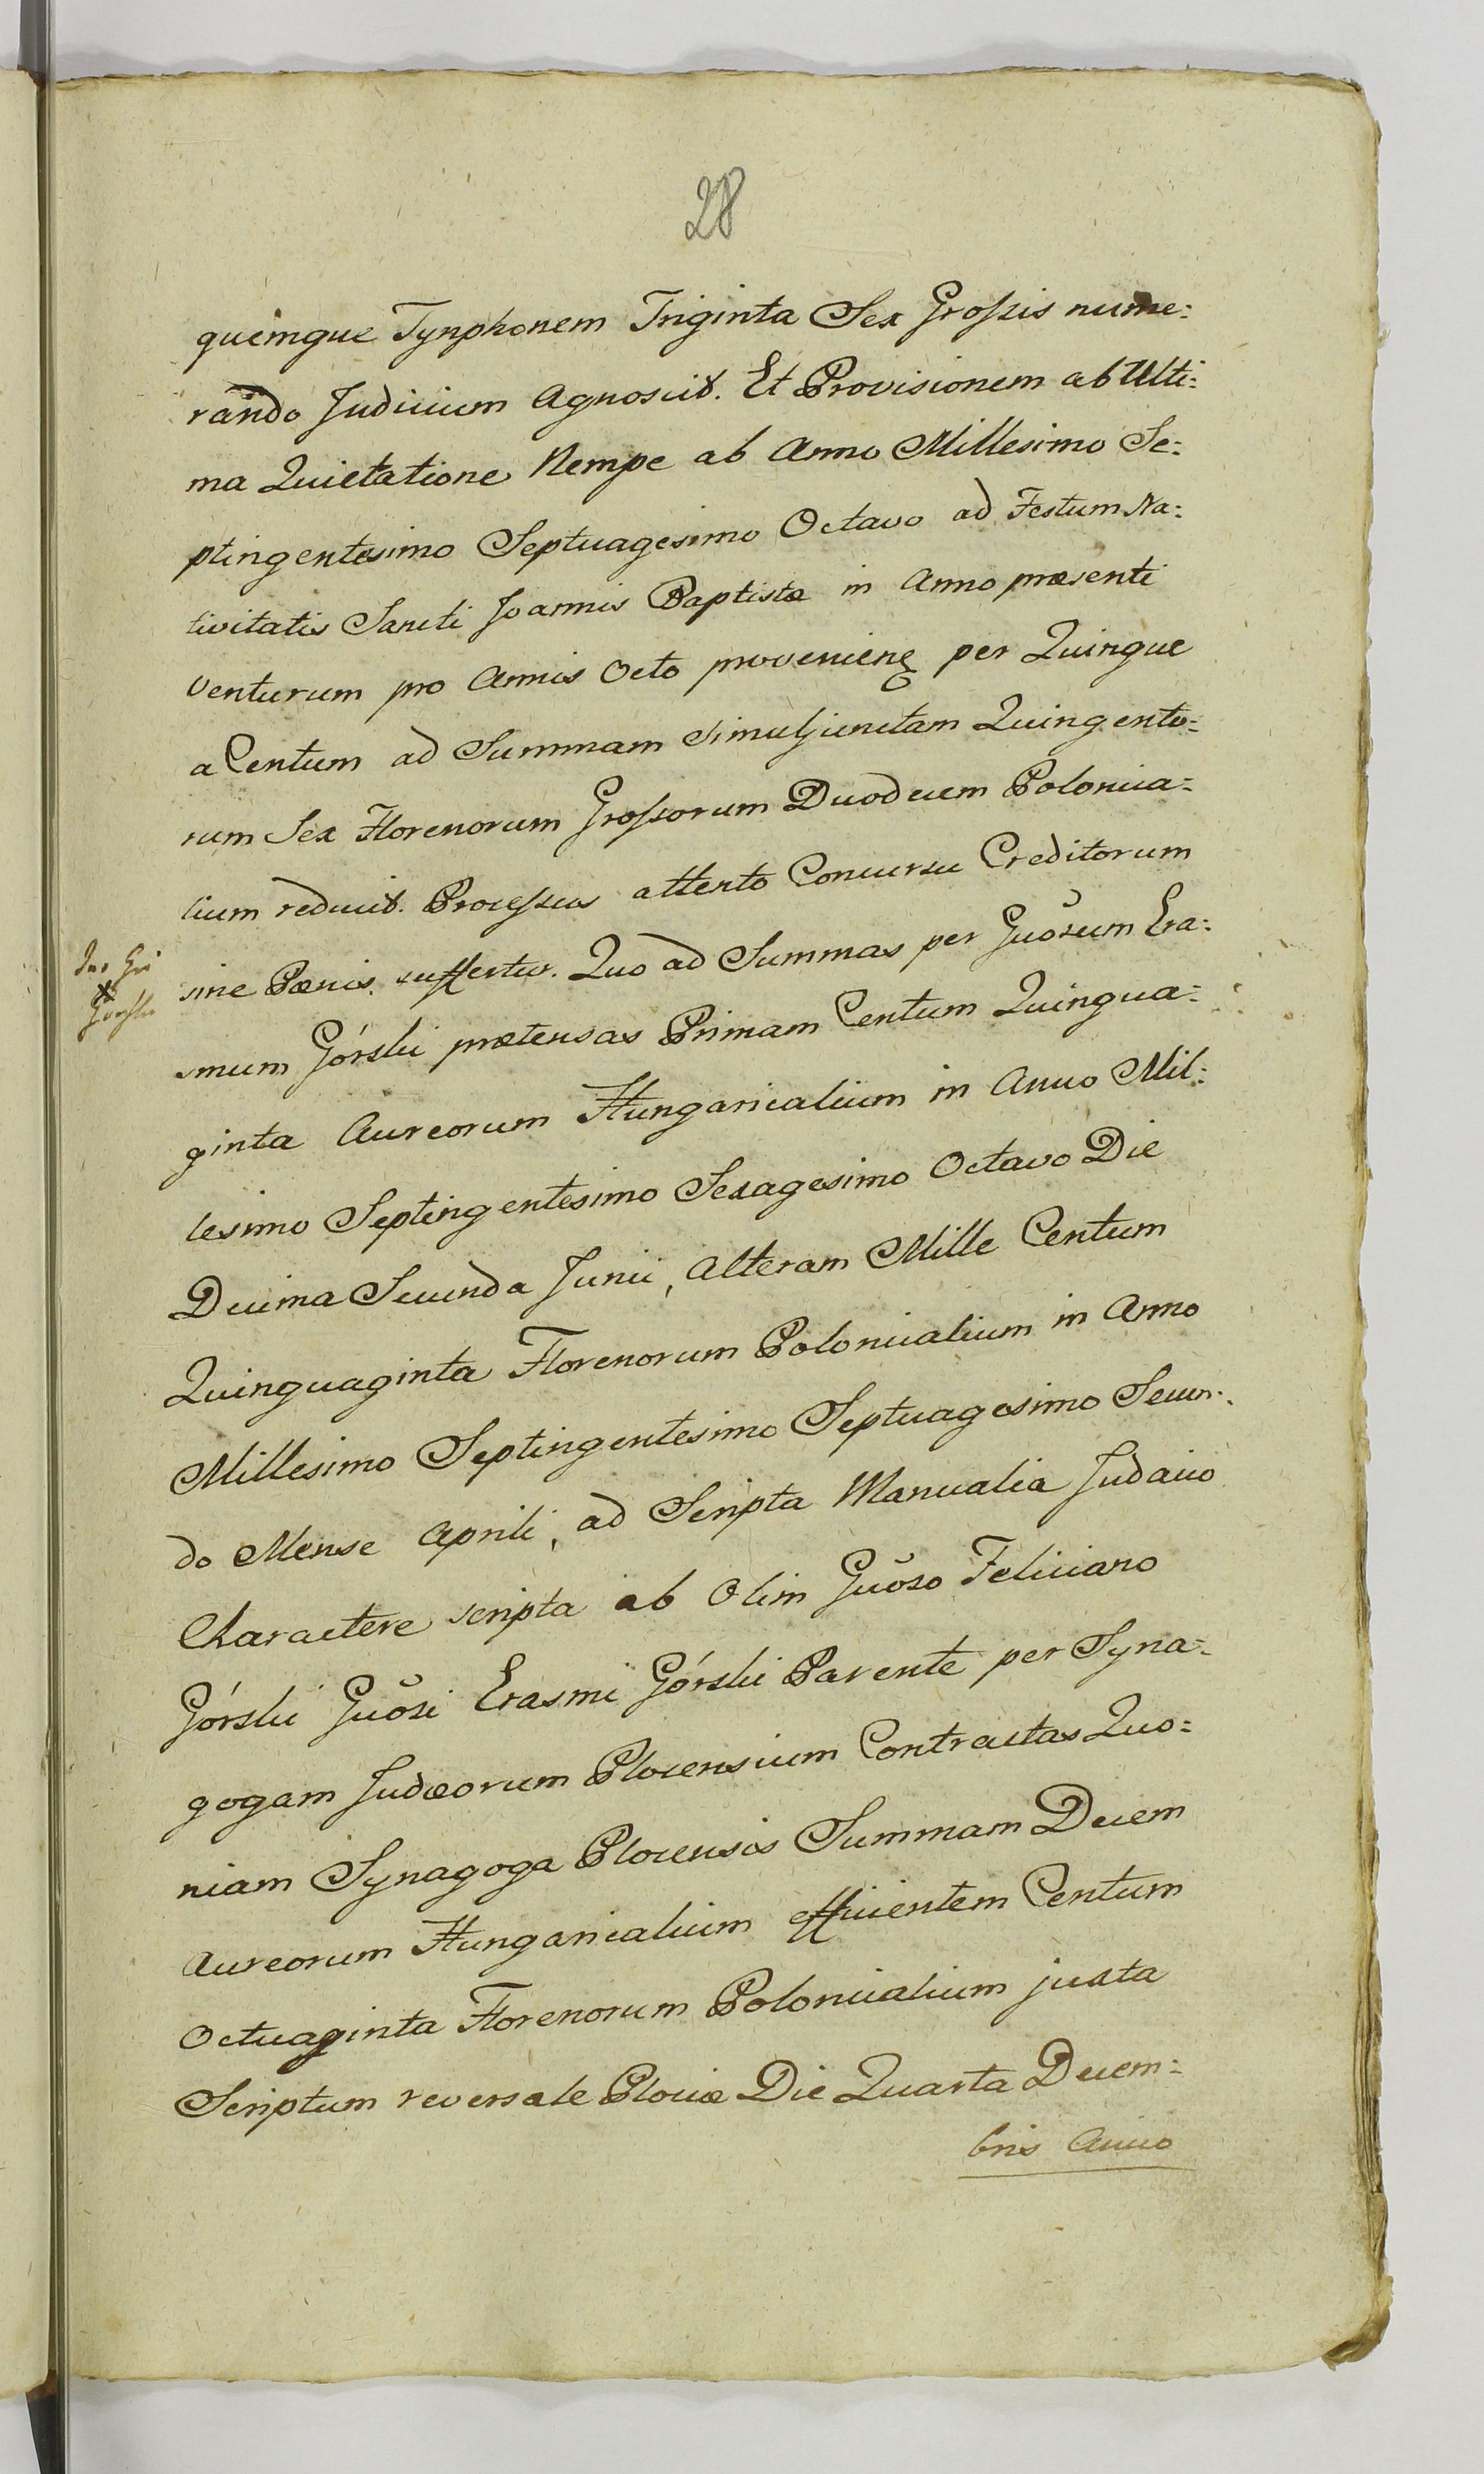 28
quemque Tynphonem Triginta Sex Grossis nume:
rando Judicium Agnoscit. Et Provisionem ab Ulti:
ma Quietatione Nempe ab Anno Millesimo Se:
ptingentesimo Septuagesimo Octavo ad Festum Na:
tivitatis Sancti Joannis Baptistæ in Anno præsenti
Venturum pro Annis Octo provenien per Quinque
a Centum ad Summam simuljunctam Quingento:
rum Sex Florenorum Grossorum Duodecem Polonica:
lium reducit. Processus attento Concursu Creditorum
sine Pœnis suffertur. Quo ad Summas per Guõsum Era:
smum Górski prætensas Primam Centum Quinqua:
ginta Aureorum Hungaricalium in Anno Mil:
lesimo Septingentesimo Sexagesimo Octavo Die
Decima Secunda Junii, Alteram Mille Centum
Quinquaginta Florenorum Polonicalium in Anno
Millesimo Septingentesimo Septuagesimo Secun:
do Mense Aprili, ad Scripta Manualia Judaico
Charactere scripta ab Olim Guõso Feliciano
Górski Guõsi Erasmi Górski Parente per Syna:
gogam Judæorum Plocensium Contractas Quo:
niam Synagoga Plocensis Summam Decem
Aureorum Hungaricalium efficientem Centum
Octuaginta Florenorum Polonicalium juxta
Scriptum reversale Plociæ Die Quarta Decem:
bris Anno